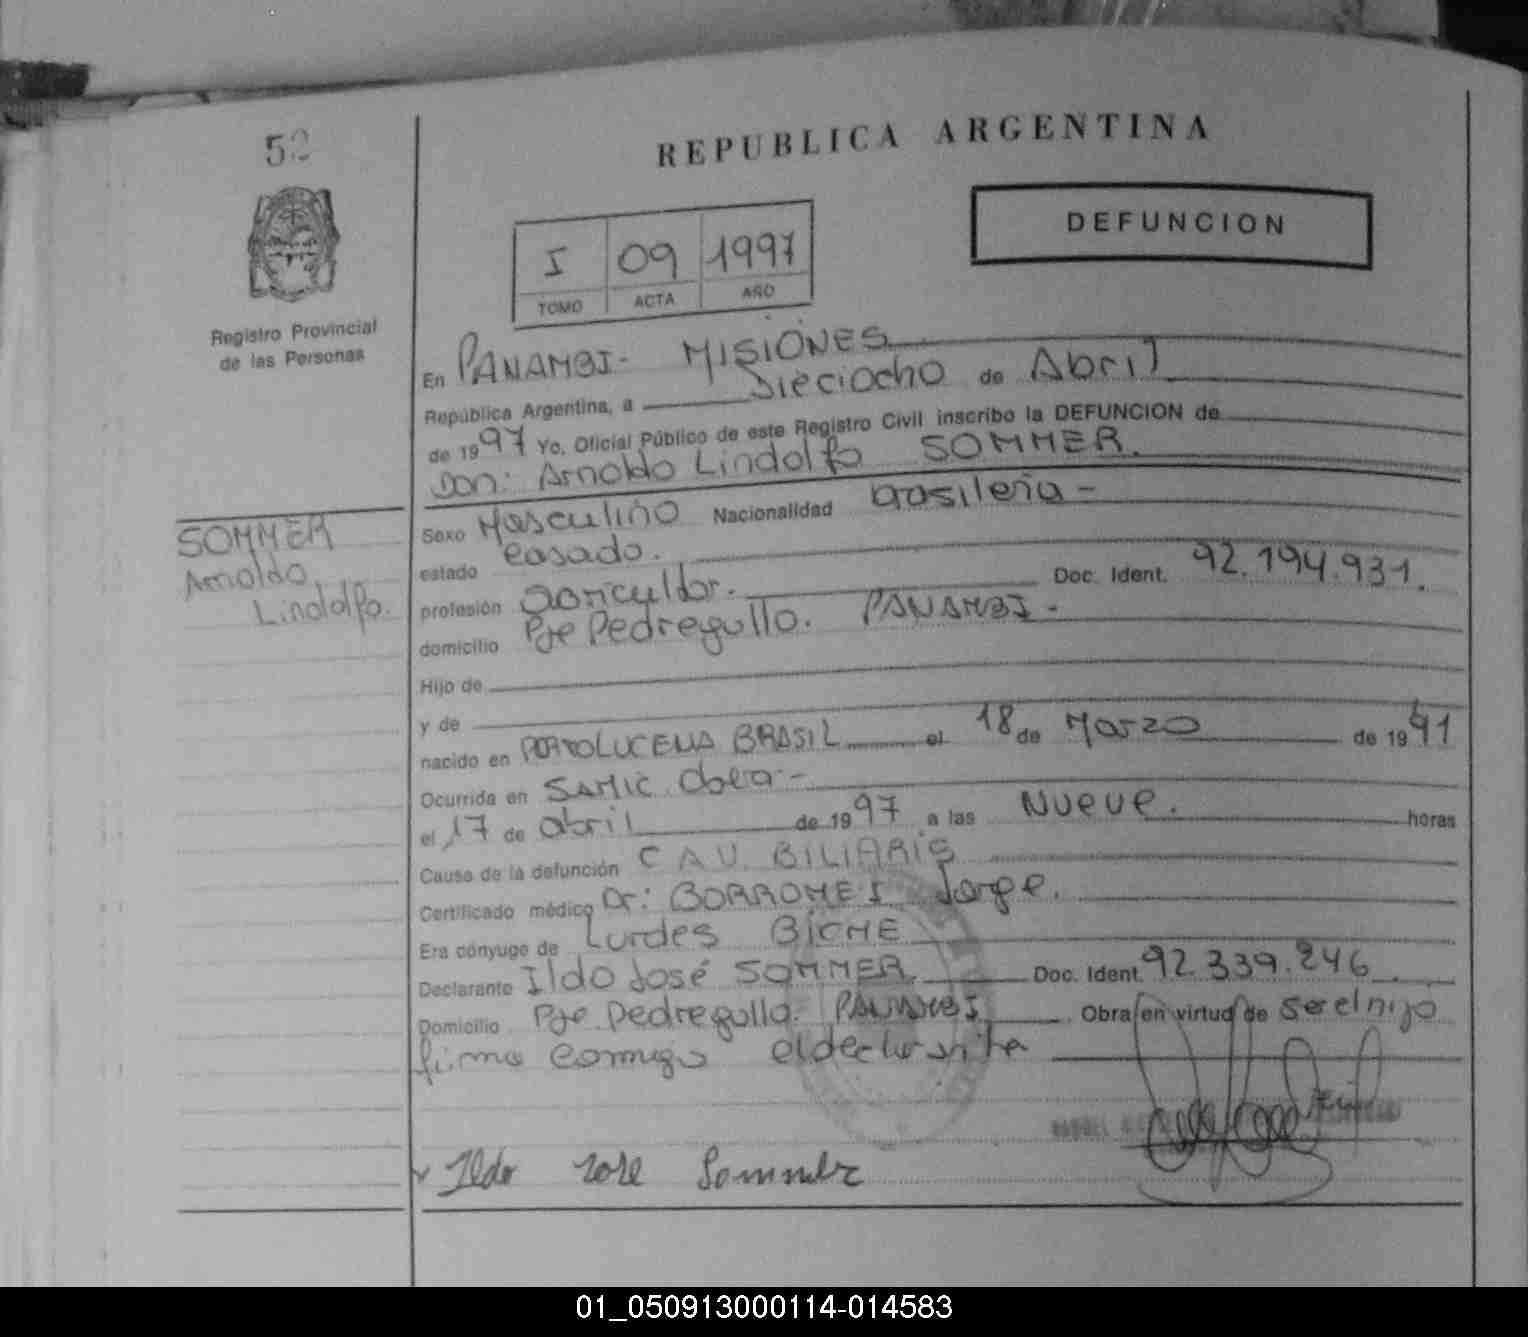 52
REPUBLICA ARGENTINA
DEFUNCION
I 09 1997
TOMO ACTA AÑO
Registro Provincial
de las Personas
En PANAMBI- MISIONES
República Argentina, a Dieciocho de Abril
de 1997 Yo, Oficial Público de este Registro Civil inscribo la DEFUNCION de
Don: Arnoldo Lindolfo SOMMER.
SOMMER
Arnoldo
Lindolfo.
Sexo Masculino Nacionalidad brasileña-
estado casado.
profesión agricultor. Doc. Ident. 92.194.931.
domicilio Pje Pedregullo. PANAMBI-
Hijo de
y de
nacido en PORTOLUCENA BRASIL el 18 de Marzo de 1941
Ocurrida en SAMIC Obera-
el 17 de abril de 1997 a las Nueve. horas
Causa de la defunción C A V. BILIARIS
Certificado médico Dr: BORROMEI Jorge.
Era cónyuge de Lurdes BICHE
Declarante Ildo José SOMMER Doc. Ident. 92.339.246.
Domicilio Pje. Pedregullo. PANAMBI Obra en virtud de ser el hijo
firma conmigo el declarante
Ildo José Sommer
01_050913000114-014583